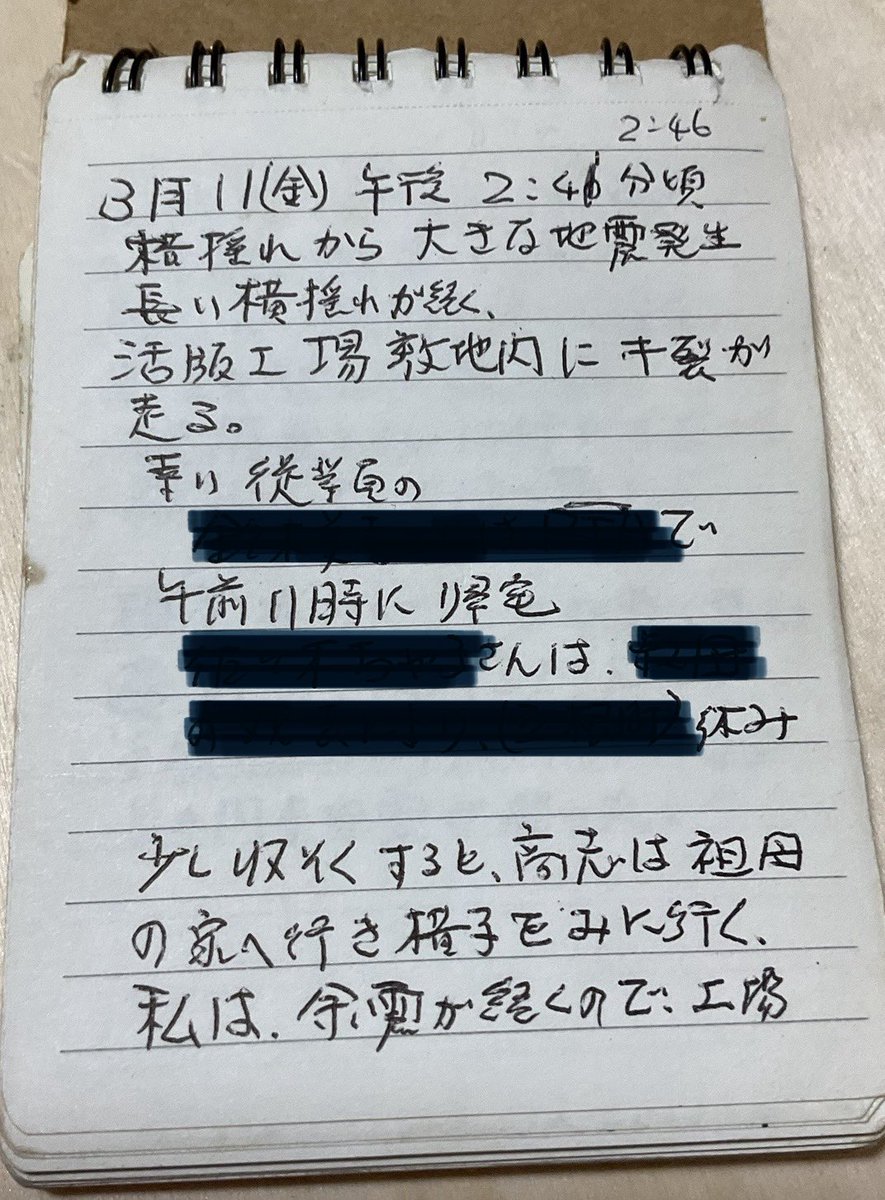 2:46
3月11(金) 午後 2:46分頃
横揺れから大きな地震発生
長い横揺れが続く、
活版工場敷地内にキ裂が
走る。
幸い従業員の
で
午前11時に帰宅
さんは、
休み
少し収そくすると、高志は祖母
の家へ行き様子をみに行く、
私は、余震が続くので、工場